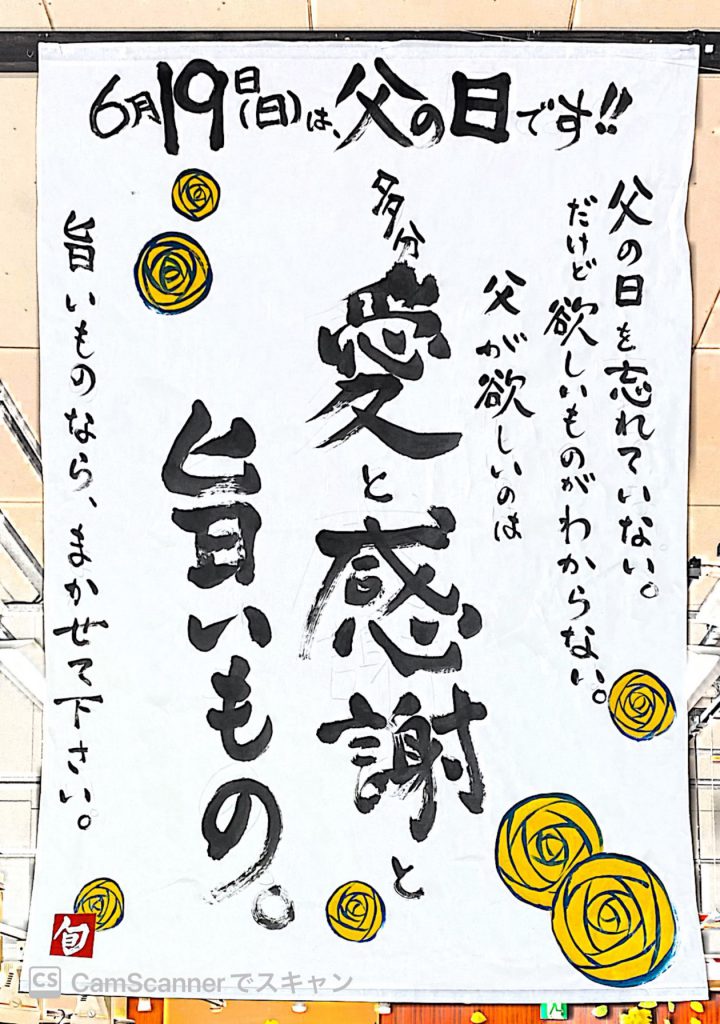 6月19日(日)は、父の日です!!
父の日を忘れていない。
だけど欲しいものがわからない。
父が欲しいのは
多分
愛と感謝と
旨いもの。
旨いものなら、まかせて下さい。
旬
CS CamScannerでスキャン